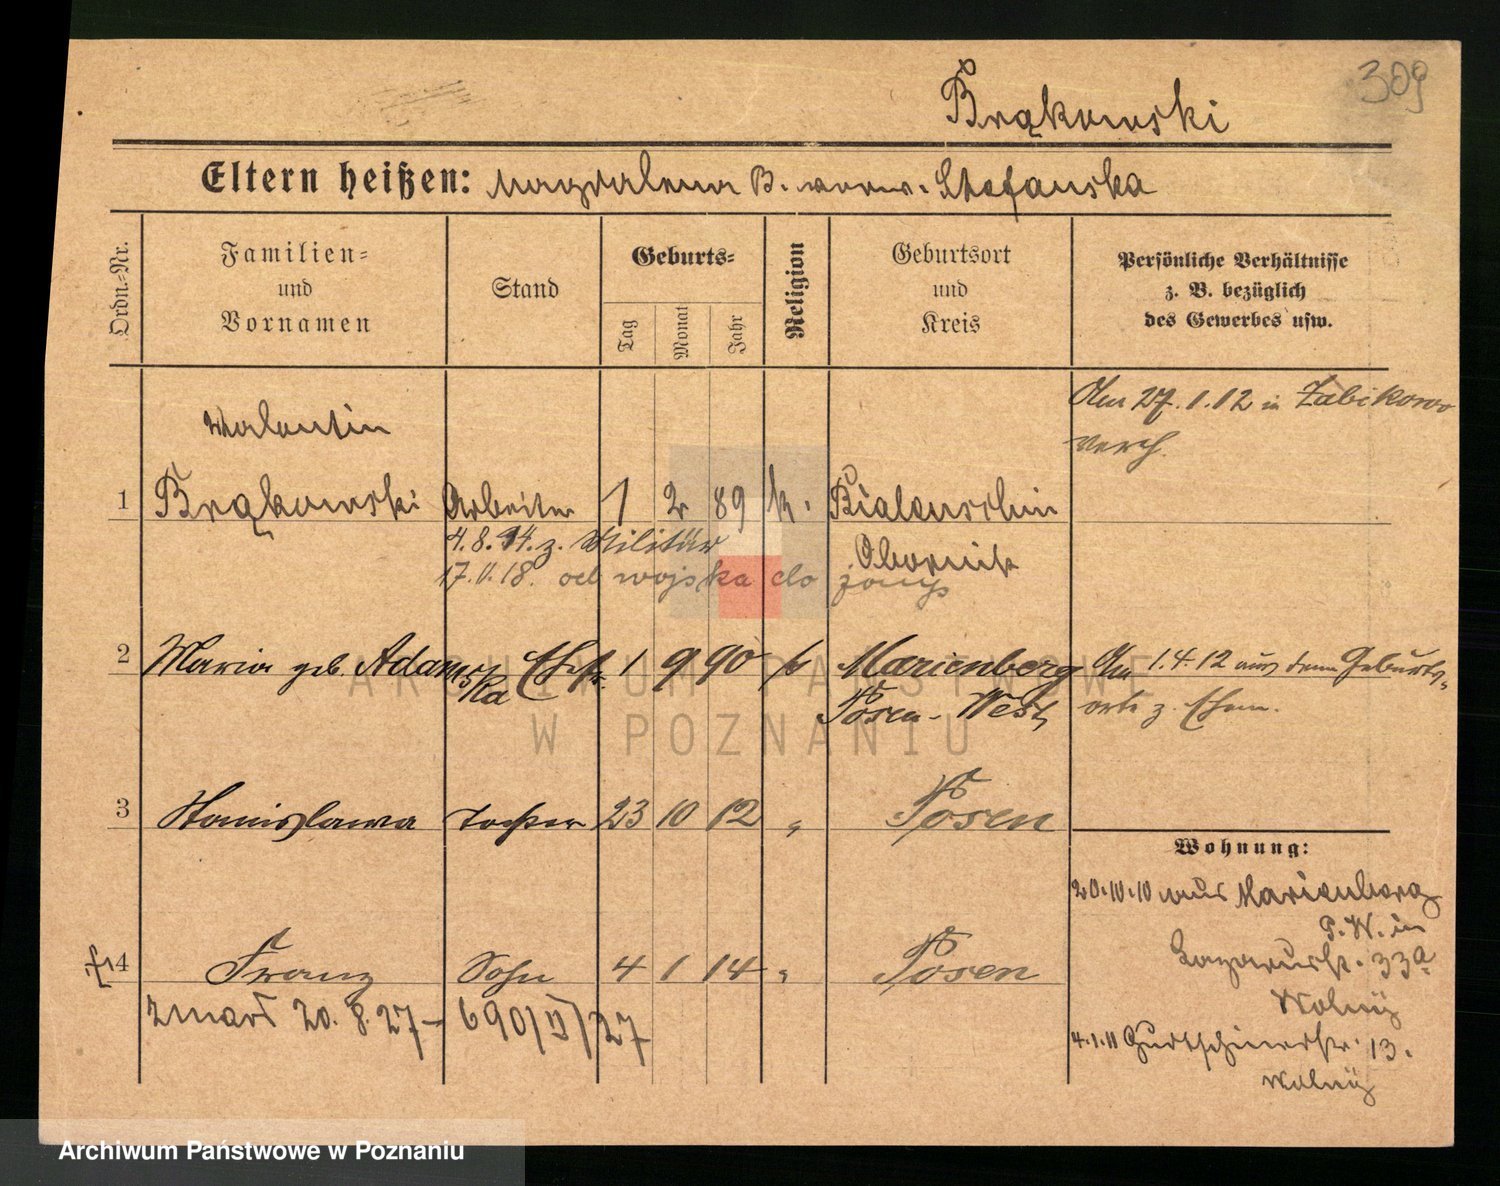 309
Brąkowski
Eltern heißen: Magdalena B. verw. Stefanska
Ordn.-Nr.
Familien-
und
Vornamen
Stand
Geburts-
Tag
Monat
Jahr
Religion
Geburtsort
und
Kreis
Persönliche Verhältnisse
z. B. bezüglich
des Gewerbes usw.
Valentin
1 Brąkowski Arbeiter 1 2 89 k. Bialenschin
Obornik
4.8.14. z. Militär
17.11.18. od wojska do żony
Am 27.1.12 in Zabikowo
verh.
2 Maria geb. Adamska Ehefr. 1 9 90 k Marienberg
Posen-West
Am 1.4.12 aus dem Geburts-
orte z. Ehem.
3 Stanislawa Tochter 23 10 12 " Posen
4 Franz Sohn 4 1 14 " Posen
zmarł 20.8.27 - 690/II/27
Wohnung:
20.10.10 aus Marienberg
P.W. in
Lazarusstr. 33a
4.1.11 Gurtschinerstr. 13.
ARCHIWUM PAŃSTWOWE
W POZNANIU
Archiwum Państwowe w Poznaniu